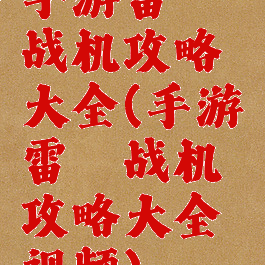 手游雷
战机攻略
大全(手游
雷 战机
攻略大全
视频)